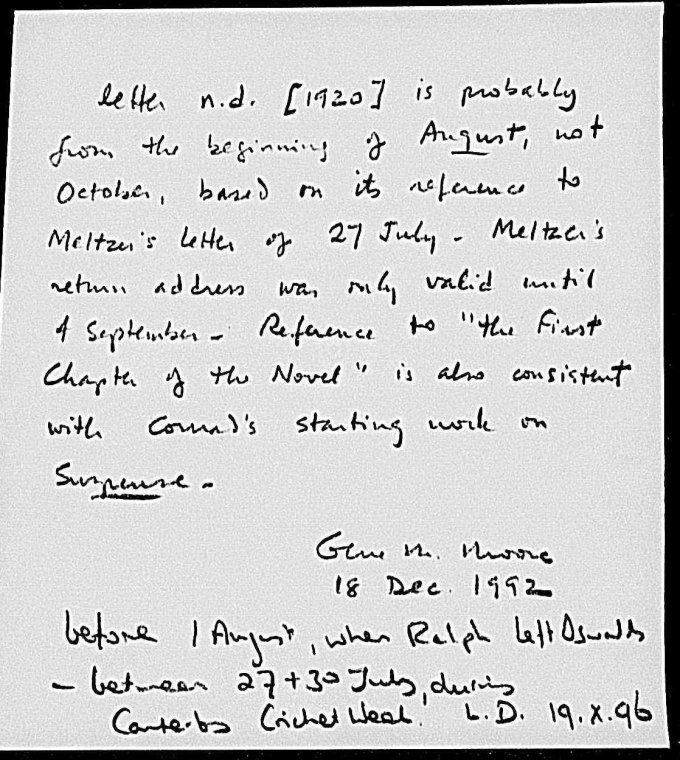 letter n.d. [1920] is probably
from the beginning of August, not
October, based on its reference to
Meltzer's letter of 27 July - Meltzer's
return address was only valid until
4 September - Reference to "the First
Chapter of the Novel" is also consistent
with Conrad's starting work on
Suspense -
Gene M. Moore
18 Dec. 1992
before 1 August, when Ralph left Oswalds
- between 27 + 30 July, during
Canterby Cricket Week. L.D. 19.X.96